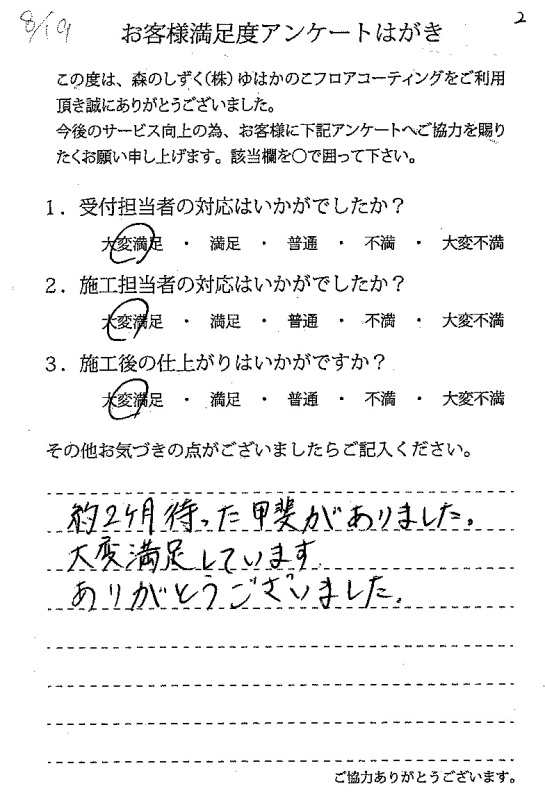 8/19
2
お客様満足度アンケートはがき
この度は、森のしずく(株)ゆはかのこフロアコーティングをご利用
頂き誠にありがとうございました。
今後のサービス向上の為、お客様に下記アンケートへご協力を賜り
たくお願い申し上げます。該当欄を〇で囲って下さい。
1．受付担当者の対応はいかがでしたか？
大変満足 ・ 満足 ・ 普通 ・ 不満 ・ 大変不満
2．施工担当者の対応はいかがでしたか？
大変満足 ・ 満足 ・ 普通 ・ 不満 ・ 大変不満
3．施工後の仕上がりはいかがですか？
大変満足 ・ 満足 ・ 普通 ・ 不満 ・ 大変不満
その他お気づきの点がございましたらご記入ください。
約2ヶ月待った甲斐がありました。
大変満足しています
ありがとうございました。
ご協力ありがとうございます。